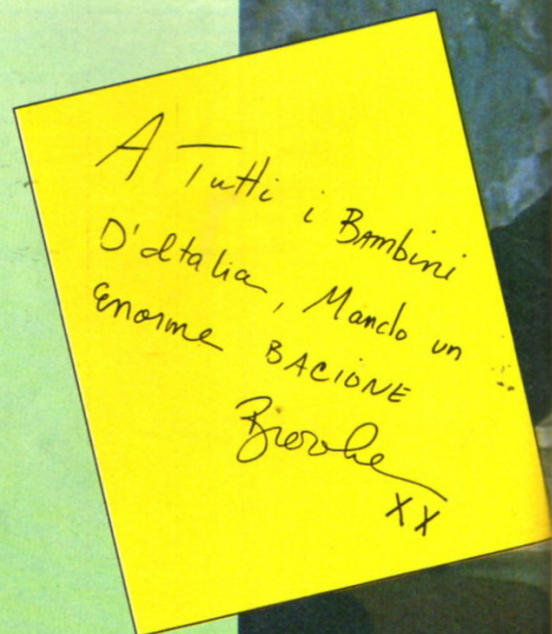 A Tutti i Bambini
D'Italia, Mando un
Enorme BACIONE
XX